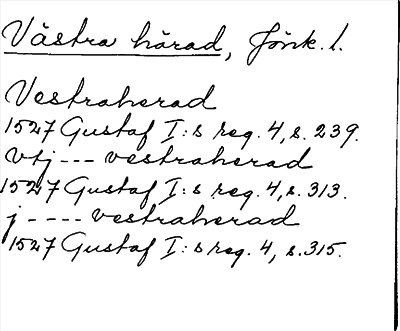 Västra härad, Jönk. l.
Vestraherad
1527 Gustaf I:s reg. 4, s. 239.
vtj --- vestraherad
1527 Gustaf I:s reg. 4, s. 313.
j ---- vestraherad
1527 Gustaf I:s reg. 4, s. 315.